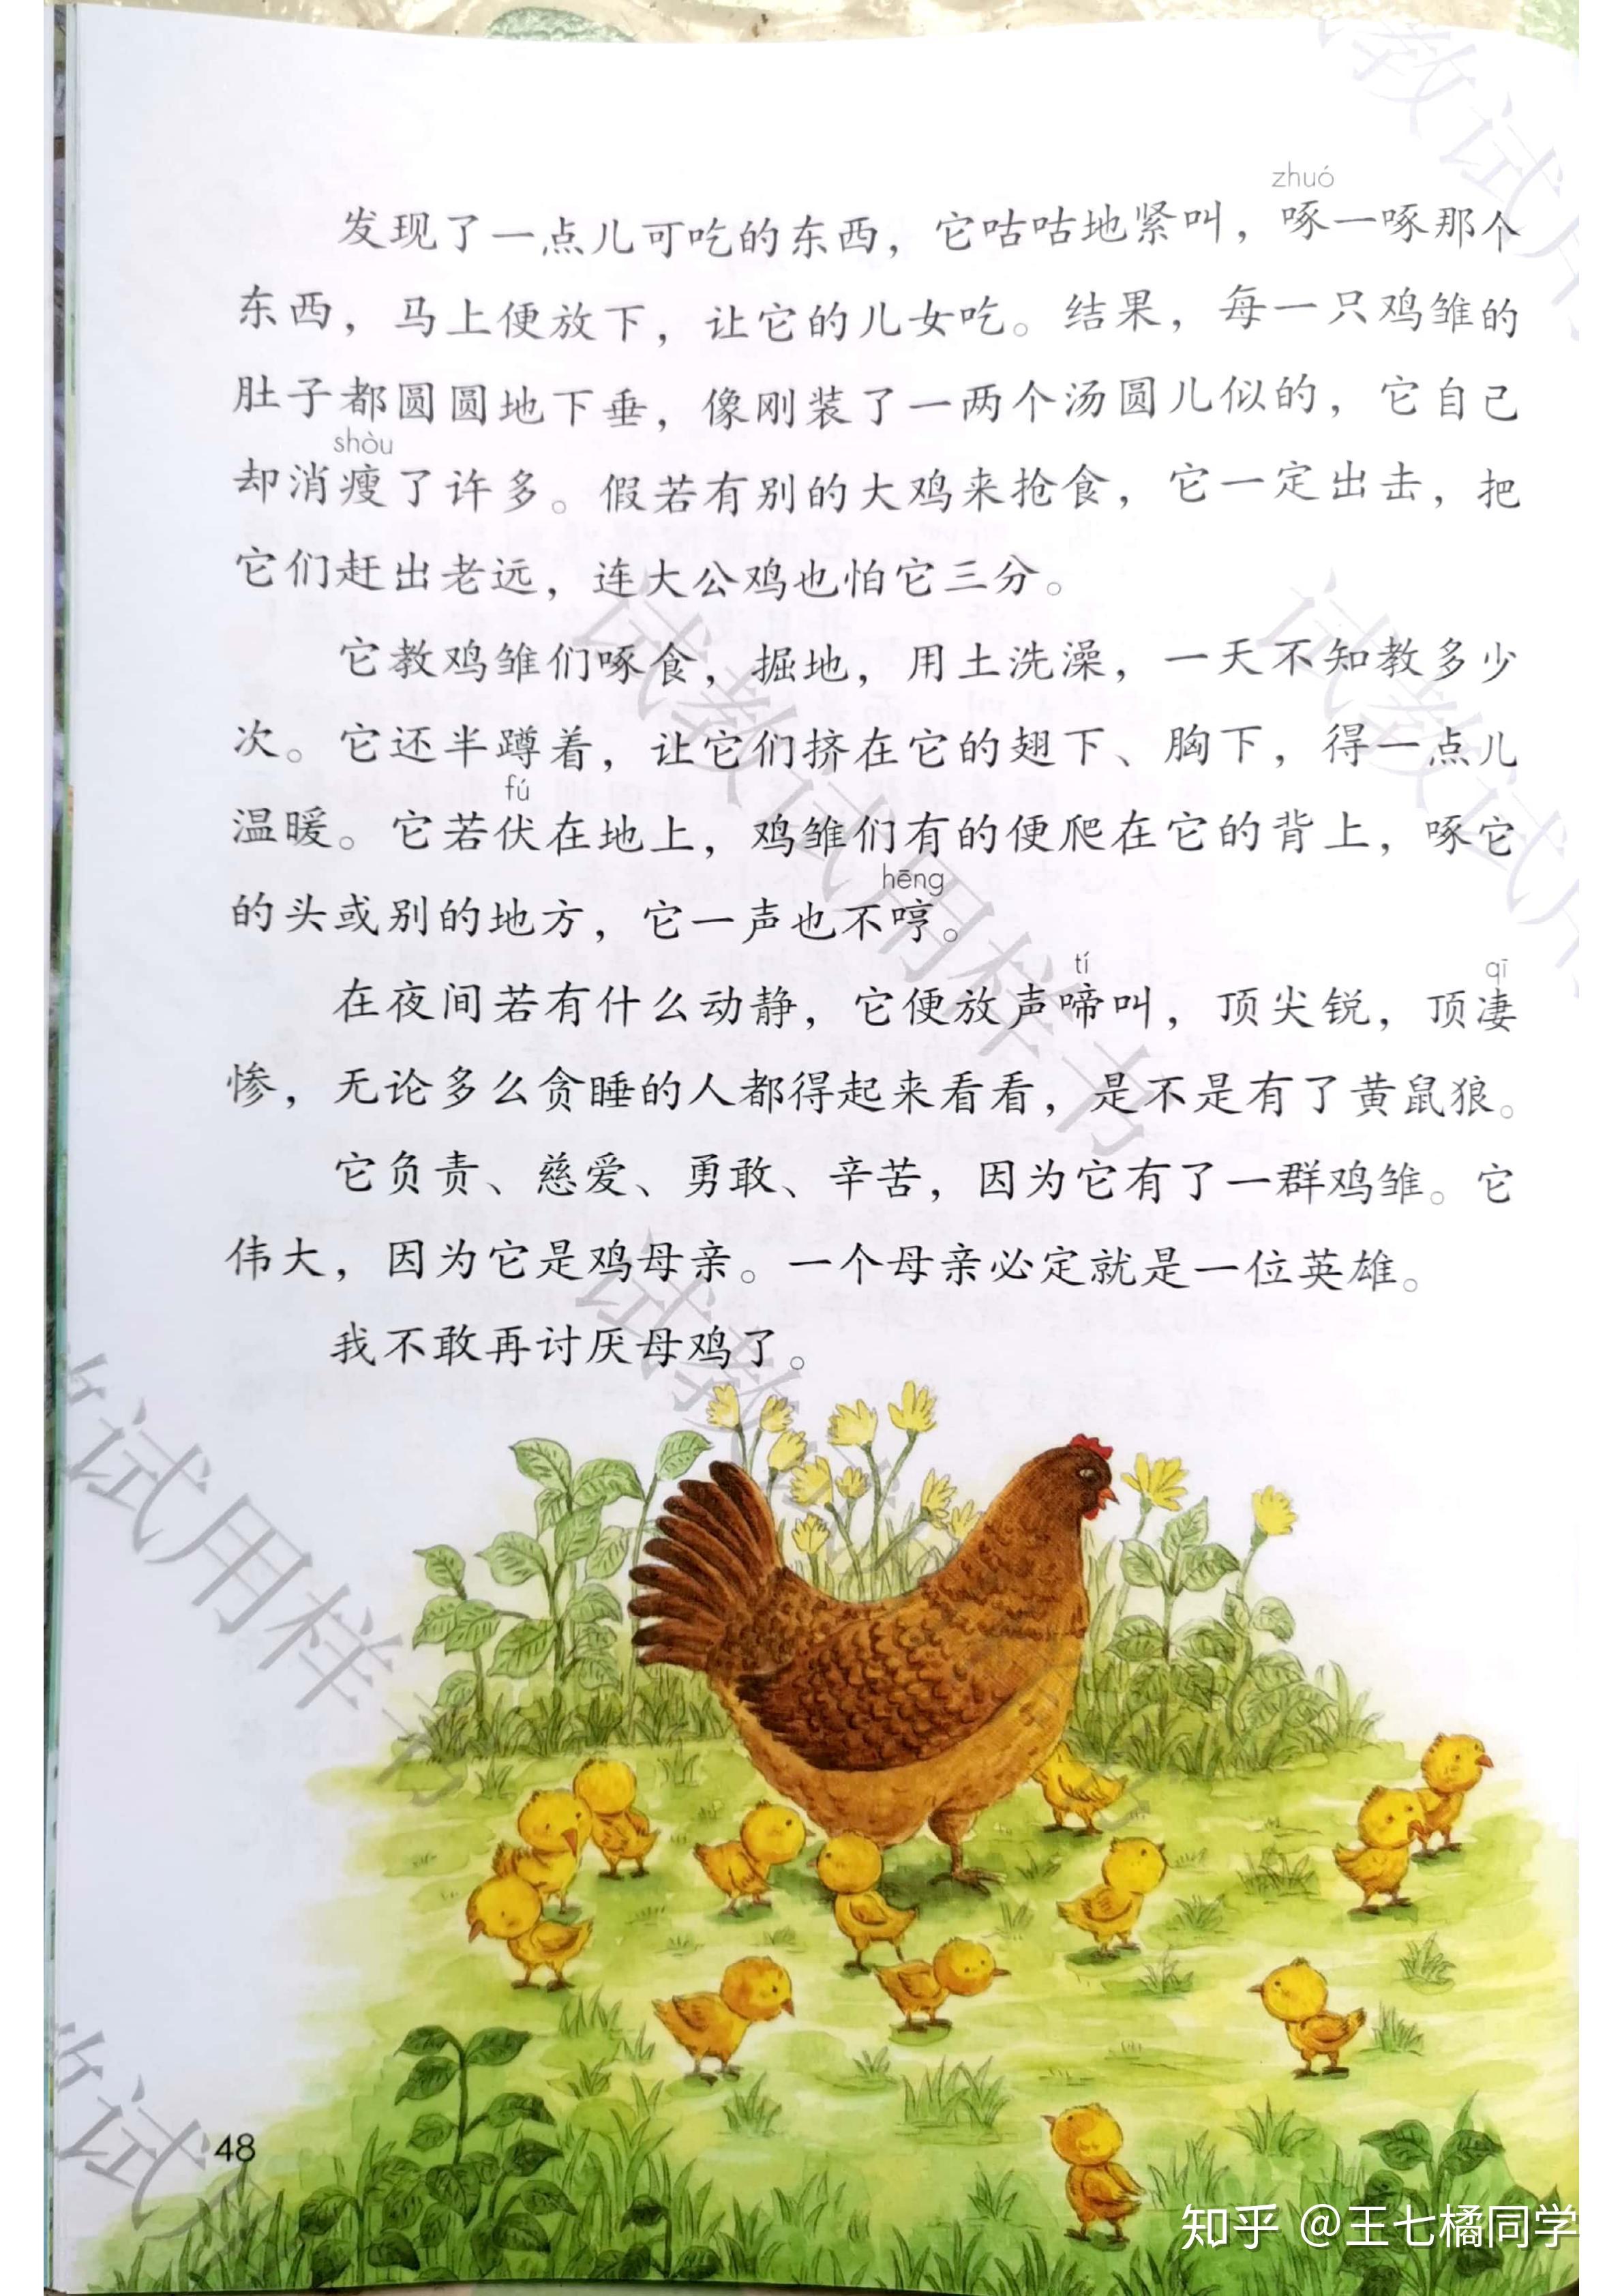 zhuó
发现了一点儿可吃的东西，它咕咕地紧叫，啄一啄那个
东西，马上便放下，让它的儿女吃。结果，每一只鸡雏的
肚子都圆圆地下垂，像刚装了一两个汤圆儿似的，它自己
shòu
却消瘦了许多。假若有别的大鸡来抢食，它一定出击，把
它们赶出老远，连大公鸡也怕它三分。
它教鸡雏们啄食，掘地，用土洗澡，一天不知教多少
次。它还半蹲着，让它们挤在它的翅下、胸下，得一点儿
fú
温暖。它若伏在地上，鸡雏们有的便爬在它的背上，啄它
hēng
的头或别的地方，它一声也不哼。
tí qī
在夜间若有什么动静，它便放声啼叫，顶尖锐，顶凄
惨，无论多么贪睡的人都得起来看看，是不是有了黄鼠狼。
它负责、慈爱、勇敢、辛苦，因为它有了一群鸡雏。它
伟大，因为它是鸡母亲。一个母亲必定就是一位英雄。
我不敢再讨厌母鸡了。
48
知乎 @王七橘同学
试教试用样书
试教试用
教试用
试用样书
试教试用样书
试用